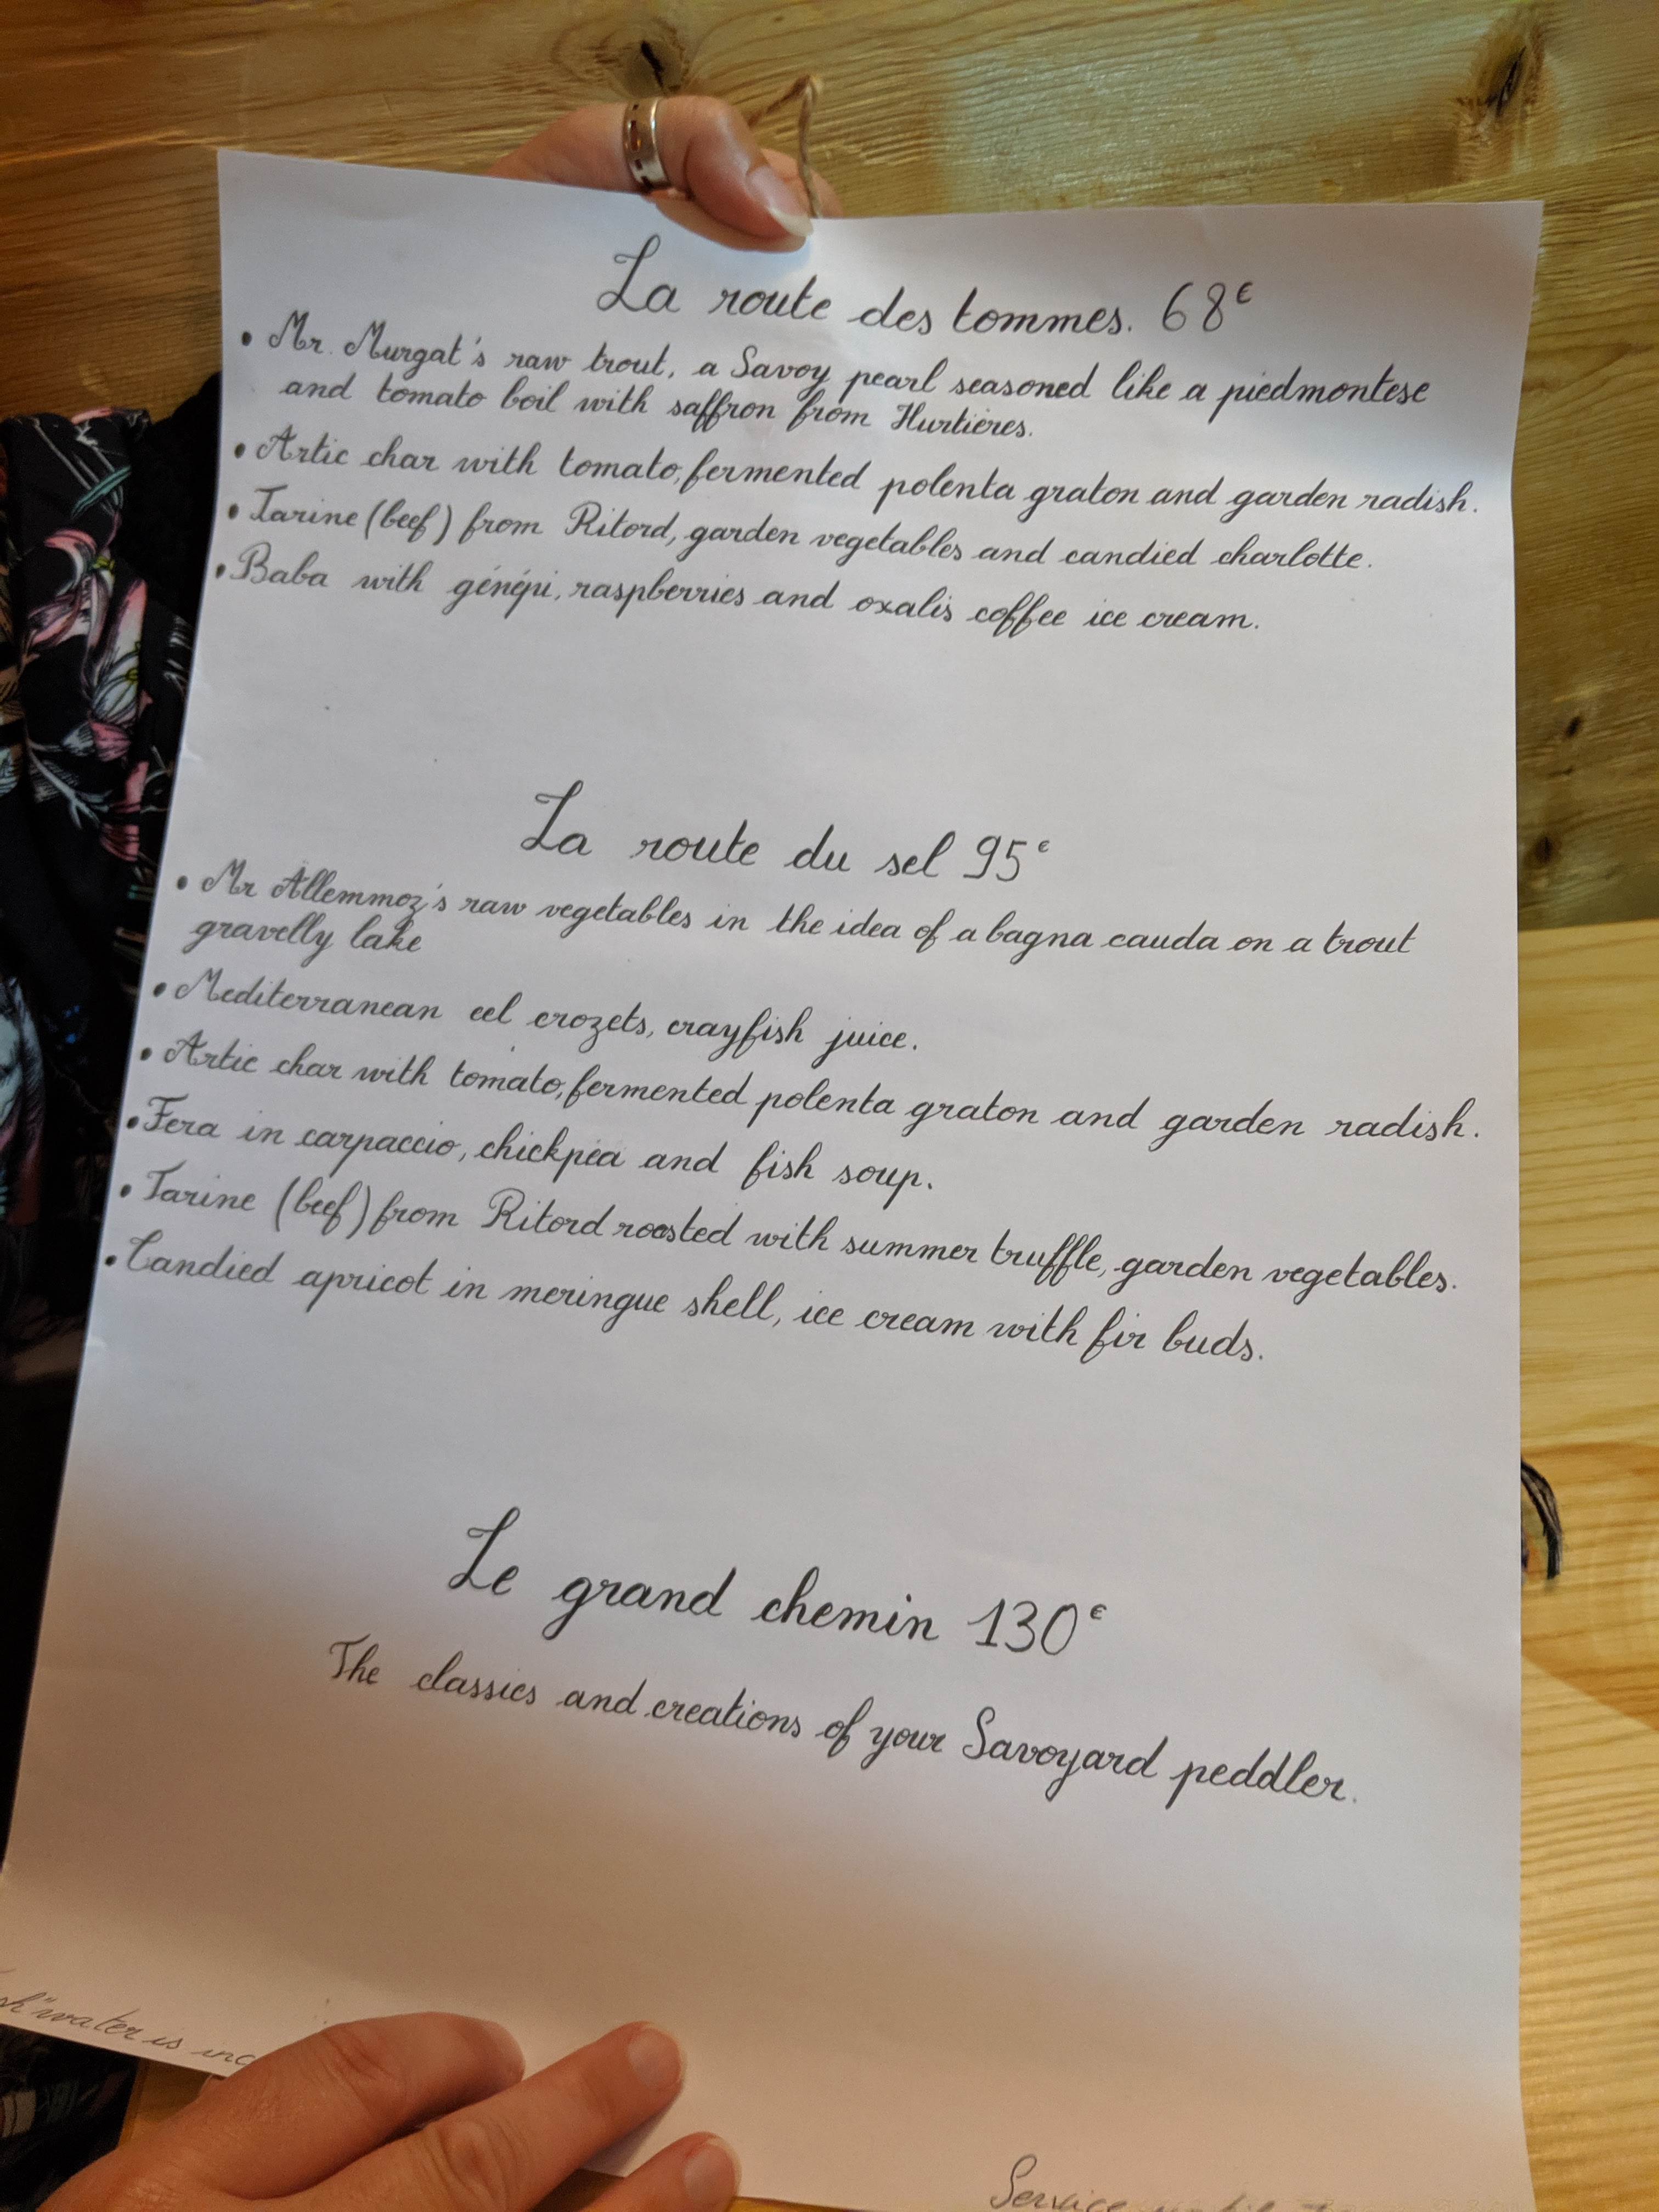 La route des tommes. 68€
• Mr. Murgat's raw trout, a Savoy pearl seasoned like a piedmontese
and tomato boil with saffron from Hurtières.
• Artic char with tomato, fermented polenta graton and garden radish.
• Tarine (beef) from Ritord, garden vegetables and candied charlotte.
• Baba with génépi, raspberries and oxalis coffee ice cream.
La route du sel 95€
• Mr Allemmoz's raw vegetables in the idea of a bagna cauda on a trout
gravelly lake
• Mediterranean eel crozets, crayfish juice.
• Artic char with tomato, fermented polenta graton and garden radish.
• Fera in carpaccio, chickpea and fish soup.
• Tarine (beef) from Ritord roasted with summer truffle, garden vegetables.
• Candied apricot in meringue shell, ice cream with fir buds.
Le grand chemin 130€
The classics and creations of your Savoyard peddler.
water is
Service